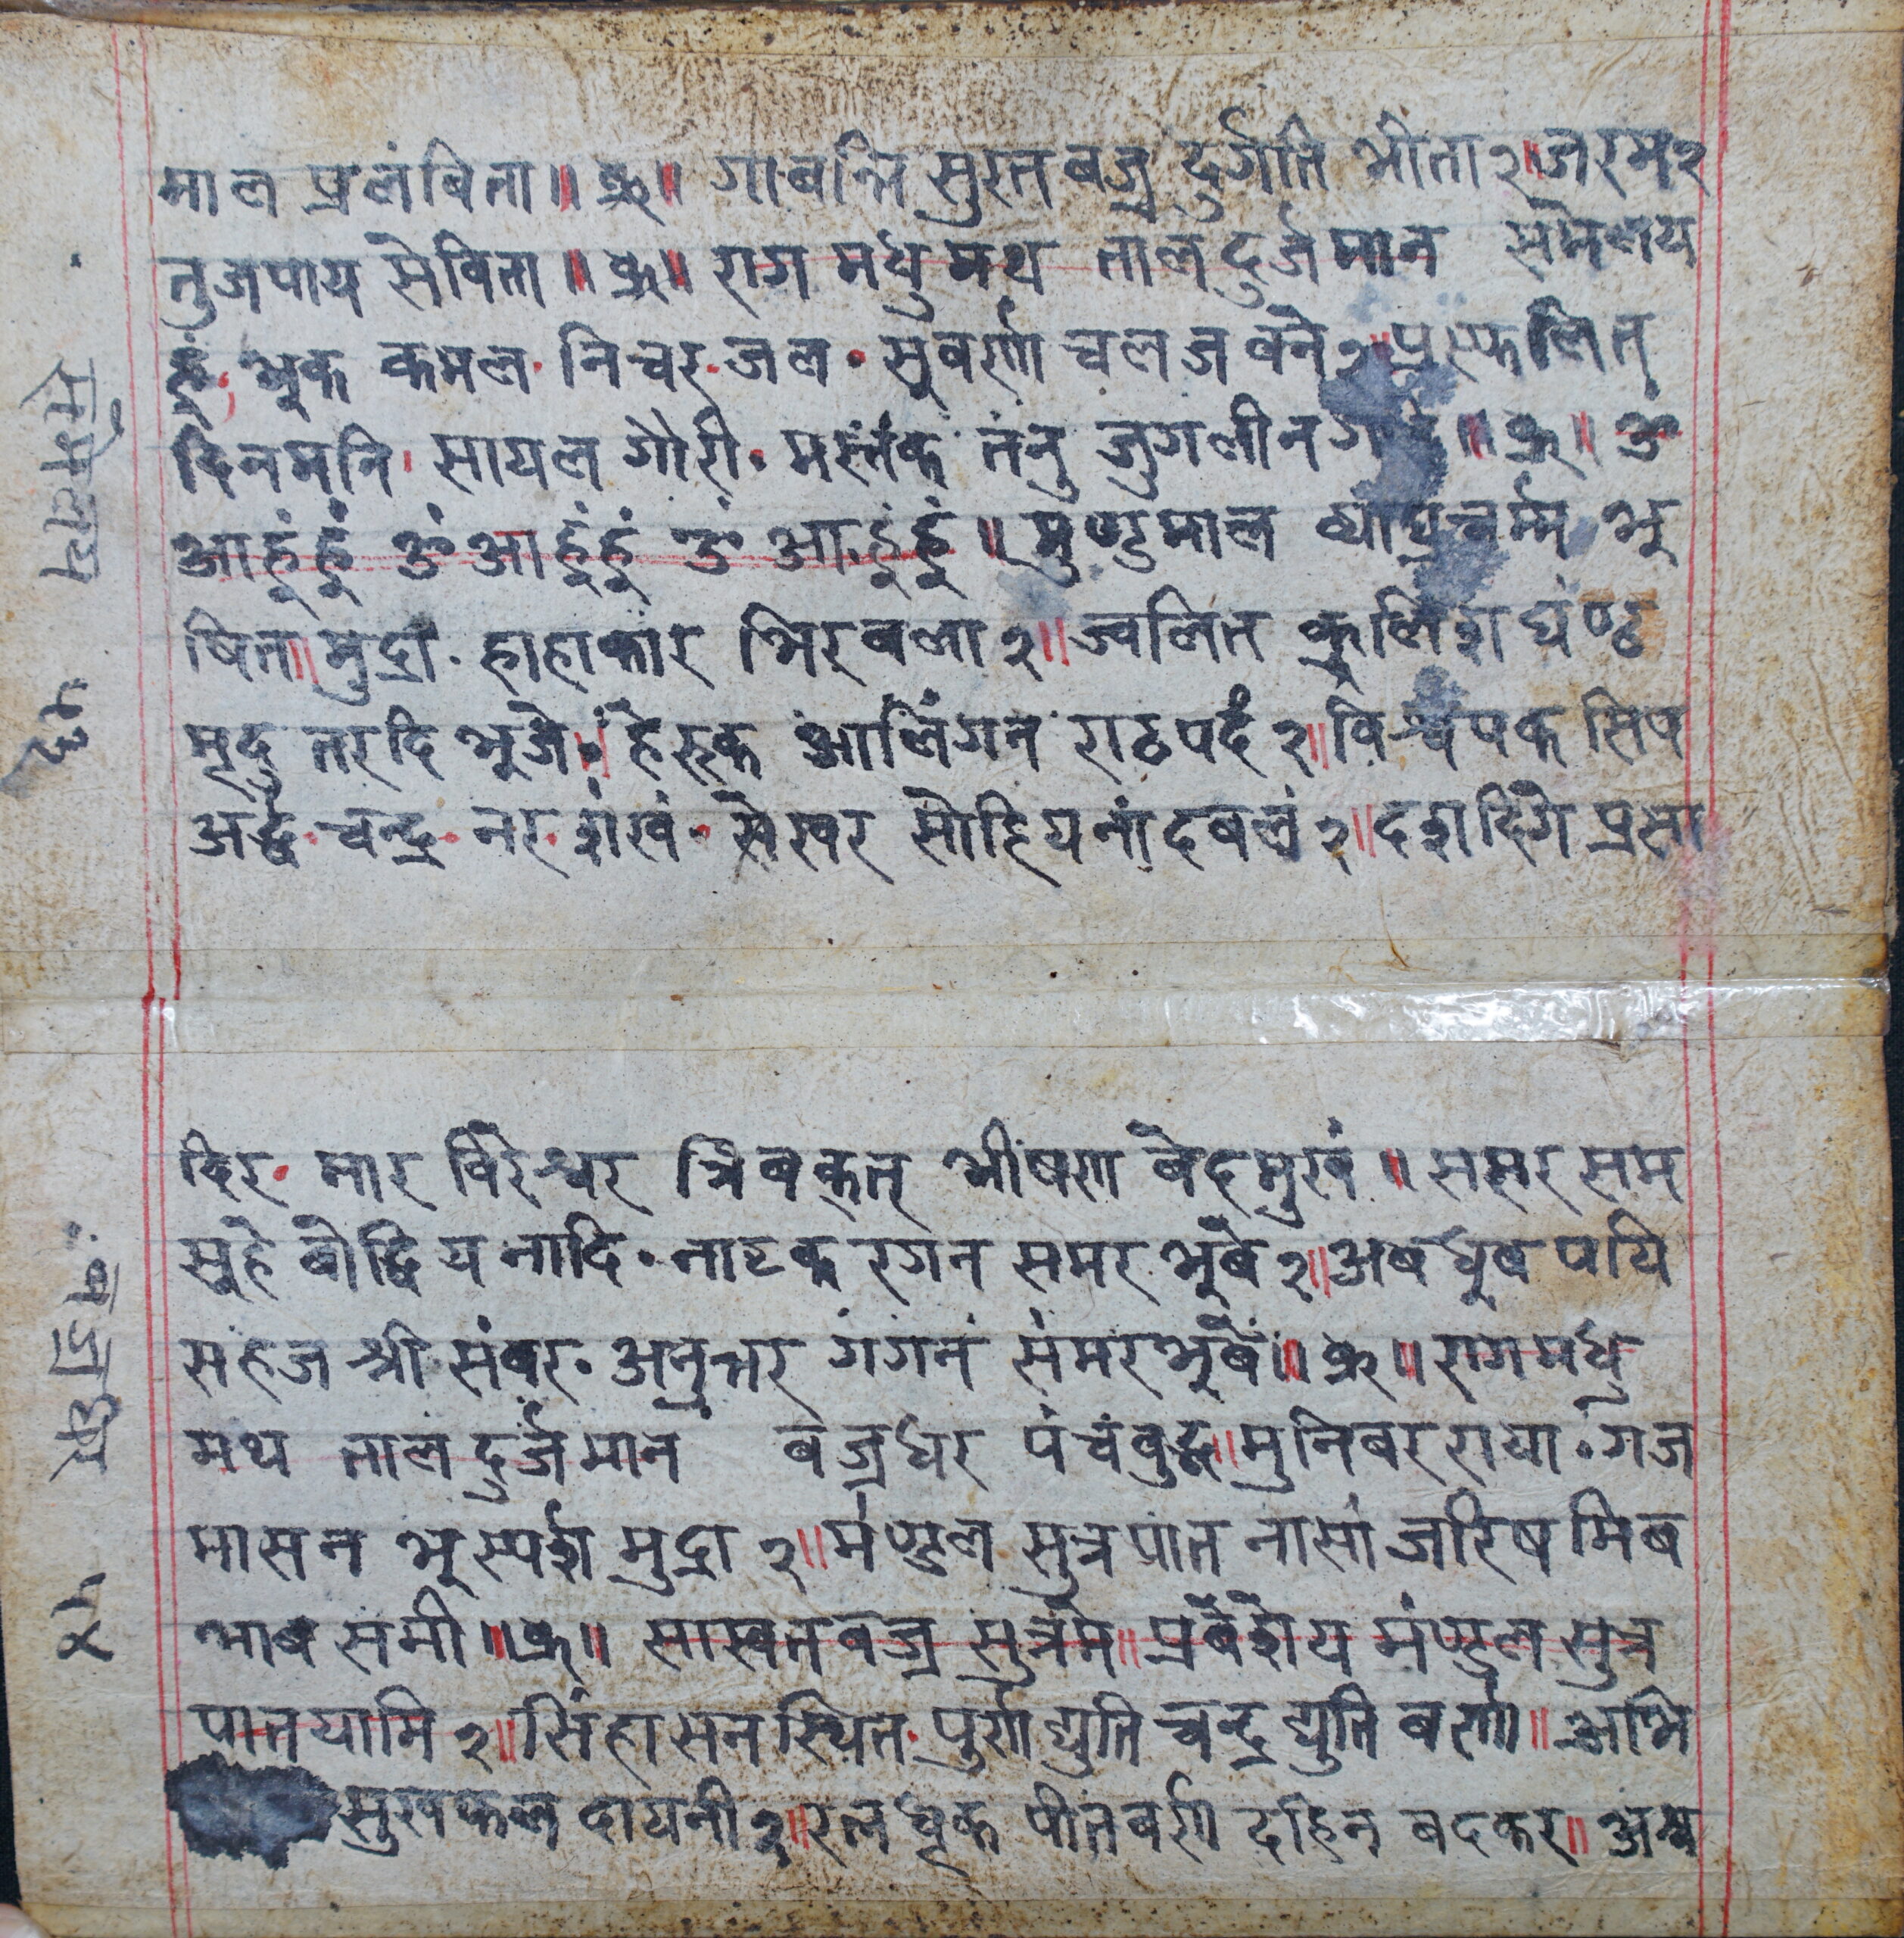 माल प्रलंबिता॥ ॐ॥ गाबन्नि सुरत बज्र दुर्गति भीता २॥ जरम२
तुजपाय सेविता॥ ॐ॥ राग मधुमथ ताल दुर्जमान समेलय
हुं भूक कमल निचर जल सुबर्ण चल ज बने २॥ प्रस्फलित
दिनमनि। सायल गौरी मस्तंक तंनु जुगणीन ॥ ॐ॥ ॐ
आहुंहुं ॐ आहुंहुं ॐ आहुंहुं॥ मुण्डमाल ब्याघ्रचर्म्म भू
षित॥ मुद्रा हाहाकार भिरबणा २॥ ज्वलित कुलिश घंण्ठ
मृदु तरदि भूजे हेरूक आलिंगन राठपदं २॥ विश्वंपक सिष
अर्द्ध चन्द्र नर शंख सेखर सोहियनांदबलं २॥ दशदिगे प्रसा
दिर मार विरेश्वर त्रिबक्त्र भीषण बेदमुखं॥ समर सम
सूहे बोद्धिय नादि नाटक रगन समर भूबे २॥ अबधूब पयि
सहज श्री संबर अनुत्तर गंगनं संमर भूबें॥ ॐ॥ राग मधु
मथ ताल दुर्जमान बज्रधर पंचंबुद्ध॥ मुनिबर राया गज
मासन भूस्पर्श मुद्रा २॥ मण्डल सुत्रपात नासां जरिष मिब
भाब समी॥ ॐ॥ सास्वतबज्र सुत्रंमे॥ प्रबेशेय मंण्डल सुत्र
पातयामि २॥ सिंहासन स्थित पुर्ण द्युति चन्द्र द्युति बर्ण॥ अभि
सुखफल दायनी २॥ रत्नधृक पीतबर्ण दहिन बदकर॥ अश्व
समेलय ५३
बज्रधर ५४